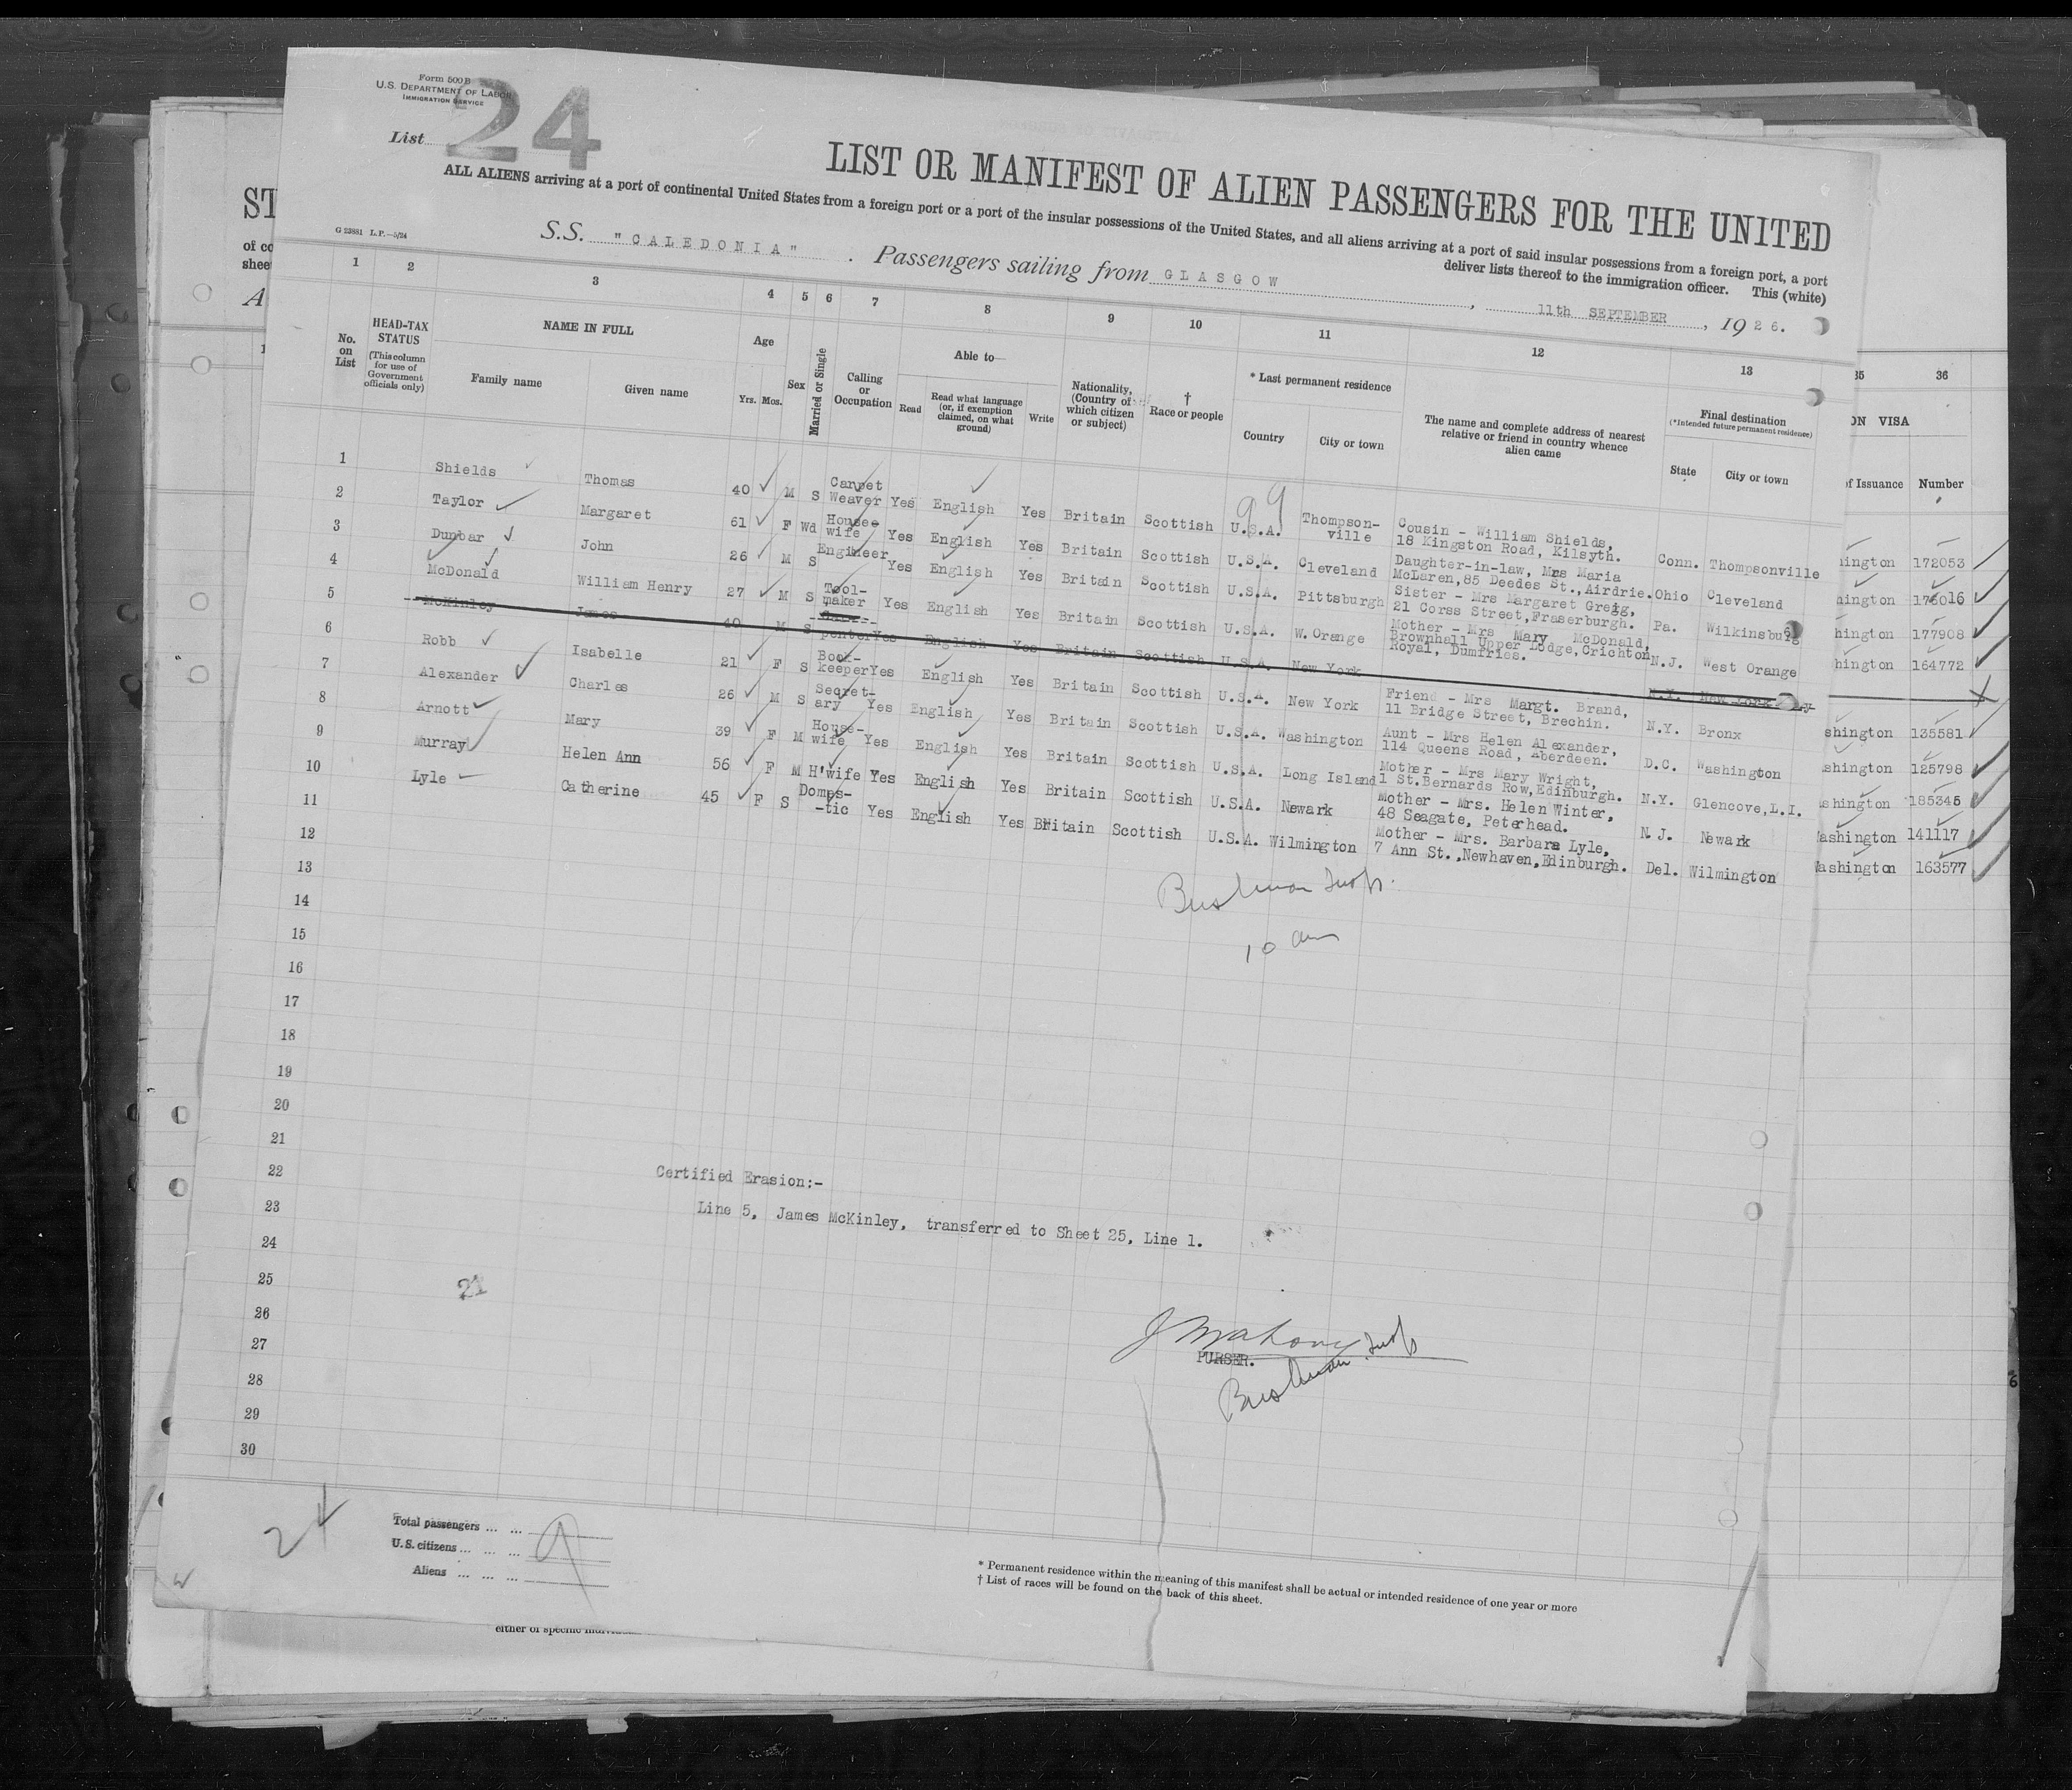 Form 500B
U.S. DEPARTMENT OF LABOR
IMMIGRATION SERVICE
List 24
LIST OR MANIFEST OF ALIEN PASSENGERS FOR THE UNITED
ALL ALIENS arriving at a port of continental United States from a foreign port or a port of the insular possessions of the United States, and all aliens arriving at a port of said insular possessions from a foreign port, a port
deliver lists thereof to the immigration officer. This (white)
G 23881 L.P.—5/24
S.S. "CALEDONIA". Passengers sailing from GLASGOW, 11th SEPTEMBER, 1926.
1 2 3 4 5 6 7 8 9 10 11 12 13
No. on List
HEAD-TAX STATUS
(This column for use of Government officials only)
NAME IN FULL
Family name Given name
Age
Yrs. Mos.
Sex
Married or Single
Calling or Occupation
Able to—
Read
Read what language (or, if exemption claimed, on what ground)
Write
Nationality, (Country of which citizen or subject)
† Race or people
* Last permanent residence
Country City or town
The name and complete address of nearest relative or friend in country whence alien came
Final destination
(*Intended future permanent residence)
State City or town
99
1 Shields Thomas 40 M S Carpet Weaver Yes English Yes Britain Scottish U.S.A. Thompson-ville Cousin - William Shields, 18 Kingston Road, Kilsyth. Conn. Thompsonville
2 Taylor Margaret 61 F Wd House-wife Yes English Yes Britain Scottish U.S.A. Cleveland Daughter-in-law, Mrs Maria McLaren, 85 Deedes St., Airdrie. Ohio Cleveland
3 Dunbar John 26 M S Engineer Yes English Yes Britain Scottish U.S.A. Pittsburgh Sister - Mrs Margaret Greig, 21 Corss Street, Fraserburgh. Pa. Wilkinsburg
4 McDonald William Henry 27 M S Tool-maker Yes English Yes Britain Scottish U.S.A. W.Orange Mother - Mrs Mary McDonald, Brownhall Upper Lodge, Crichton Royal, Dumfries. N.J. West Orange
5 McKinley James 40 M S penter Yes English Yes Britain Scottish U.S.A. New York N.Y. New York
6 Robb Isabelle 21 F S Book-keeper Yes English Yes Britain Scottish U.S.A. New York Friend - Mrs Margt. Brand, 11 Bridge Street, Brechin. N.Y. Bronx
7 Alexander Charles 26 M S Secret-ary Yes English Yes Britain Scottish U.S.A. Washington Aunt - Mrs Helen Alexander, 114 Queens Road, Aberdeen. D.C. Washington
8 Arnott Mary 39 F M House-wife Yes English Yes Britain Scottish U.S.A. Long Island Mother - Mrs Mary Wright, 1 St.Bernards Row, Edinburgh. N.Y. Glencove, L.I.
9 Murray Helen Ann 56 F M H'wife Yes English Yes Britain Scottish U.S.A. Newark Mother - Mrs. Helen Winter, 48 Seagate, Peterhead. N.J. Newark
10 Lyle Catherine 45 F S Domes-tic Yes English Yes Britain Scottish U.S.A. Wilmington Mother - Mrs. Barbara Lyle, 7 Ann St., Newhaven, Edinburgh. Del. Wilmington
11
12
13
14
15
10 am
16
17
18
19
20
21
22
Certified Erasion:-
23
Line 5, James McKinley, transferred to Sheet 25, Line 1.
24
25
26
27
PURSER.
28
29
30
24
Total passengers ... ...
U.S. citizens ... ... ... 9
Aliens ... ... ...
* Permanent residence within the meaning of this manifest shall be actual or intended residence of one year or more
† List of races will be found on the back of this sheet.
ST
of co
sheet
A
35 36
ON VISA
of Issuance Number
ington 172053
ington 176016
hington 177908
hington 164772
shington 135581
shington 125798
shington 185345
ashington 141117
ashington 163577
either of specific